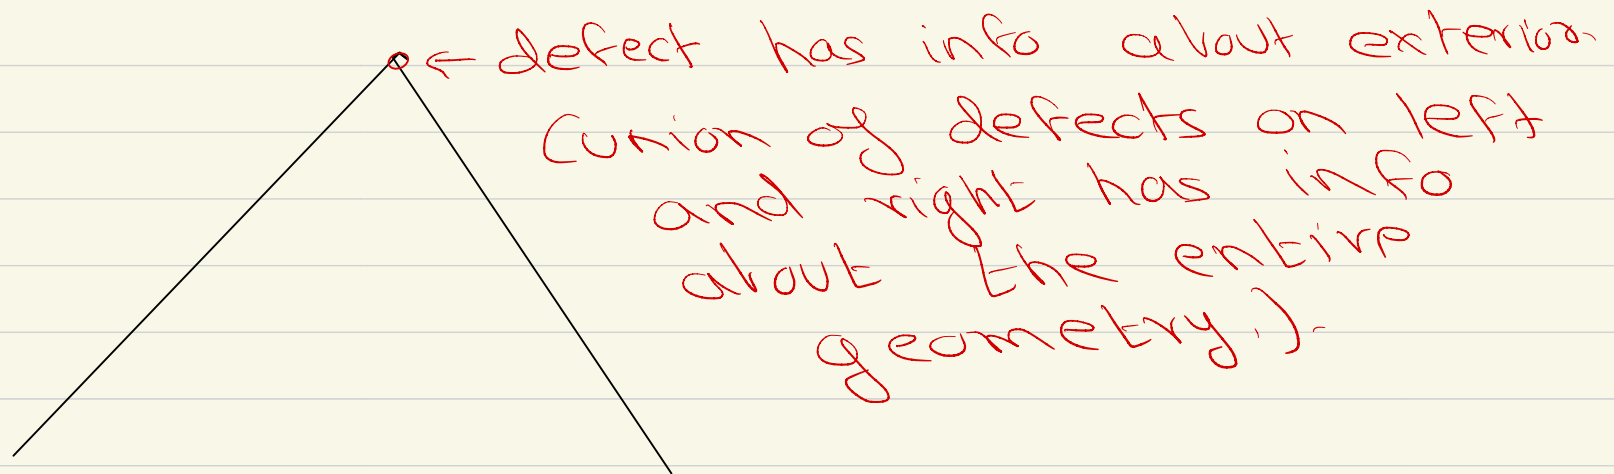 ← defect has info about exterior.
(union of defects on left
and right has info
about the entire
geometry.).